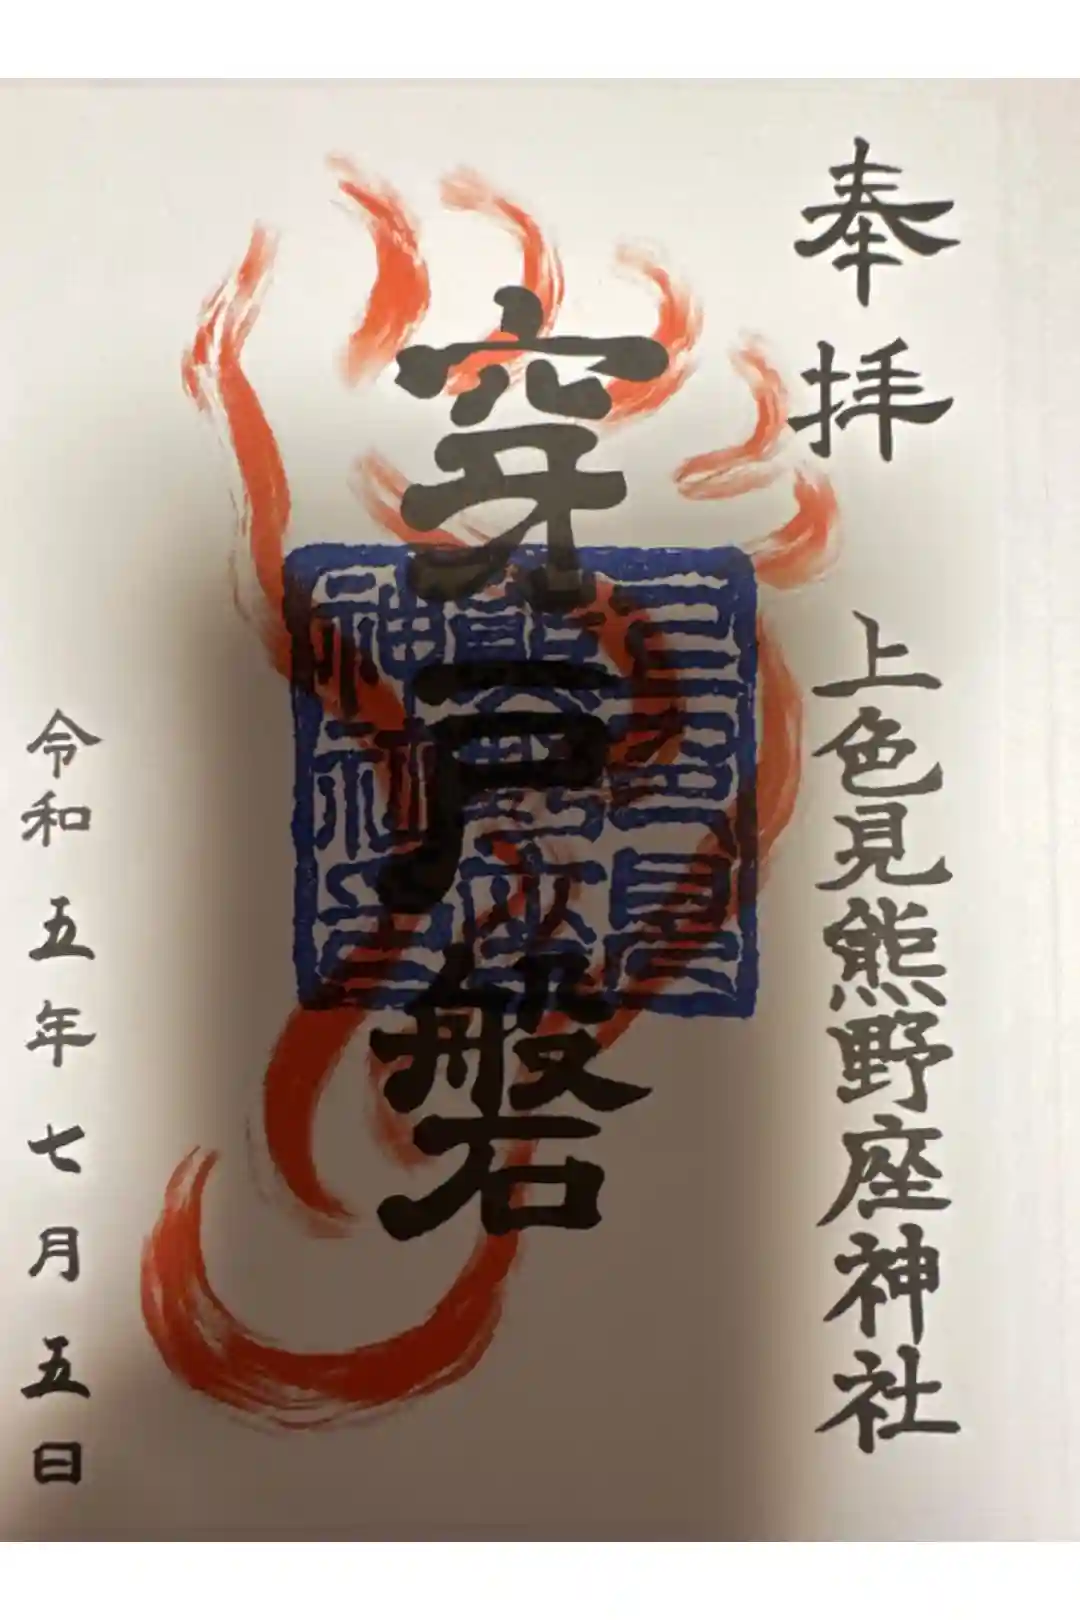 奉拝
上色見熊野座神社
穿戸磐
上色見
熊野座
神社
令和五年七月五日